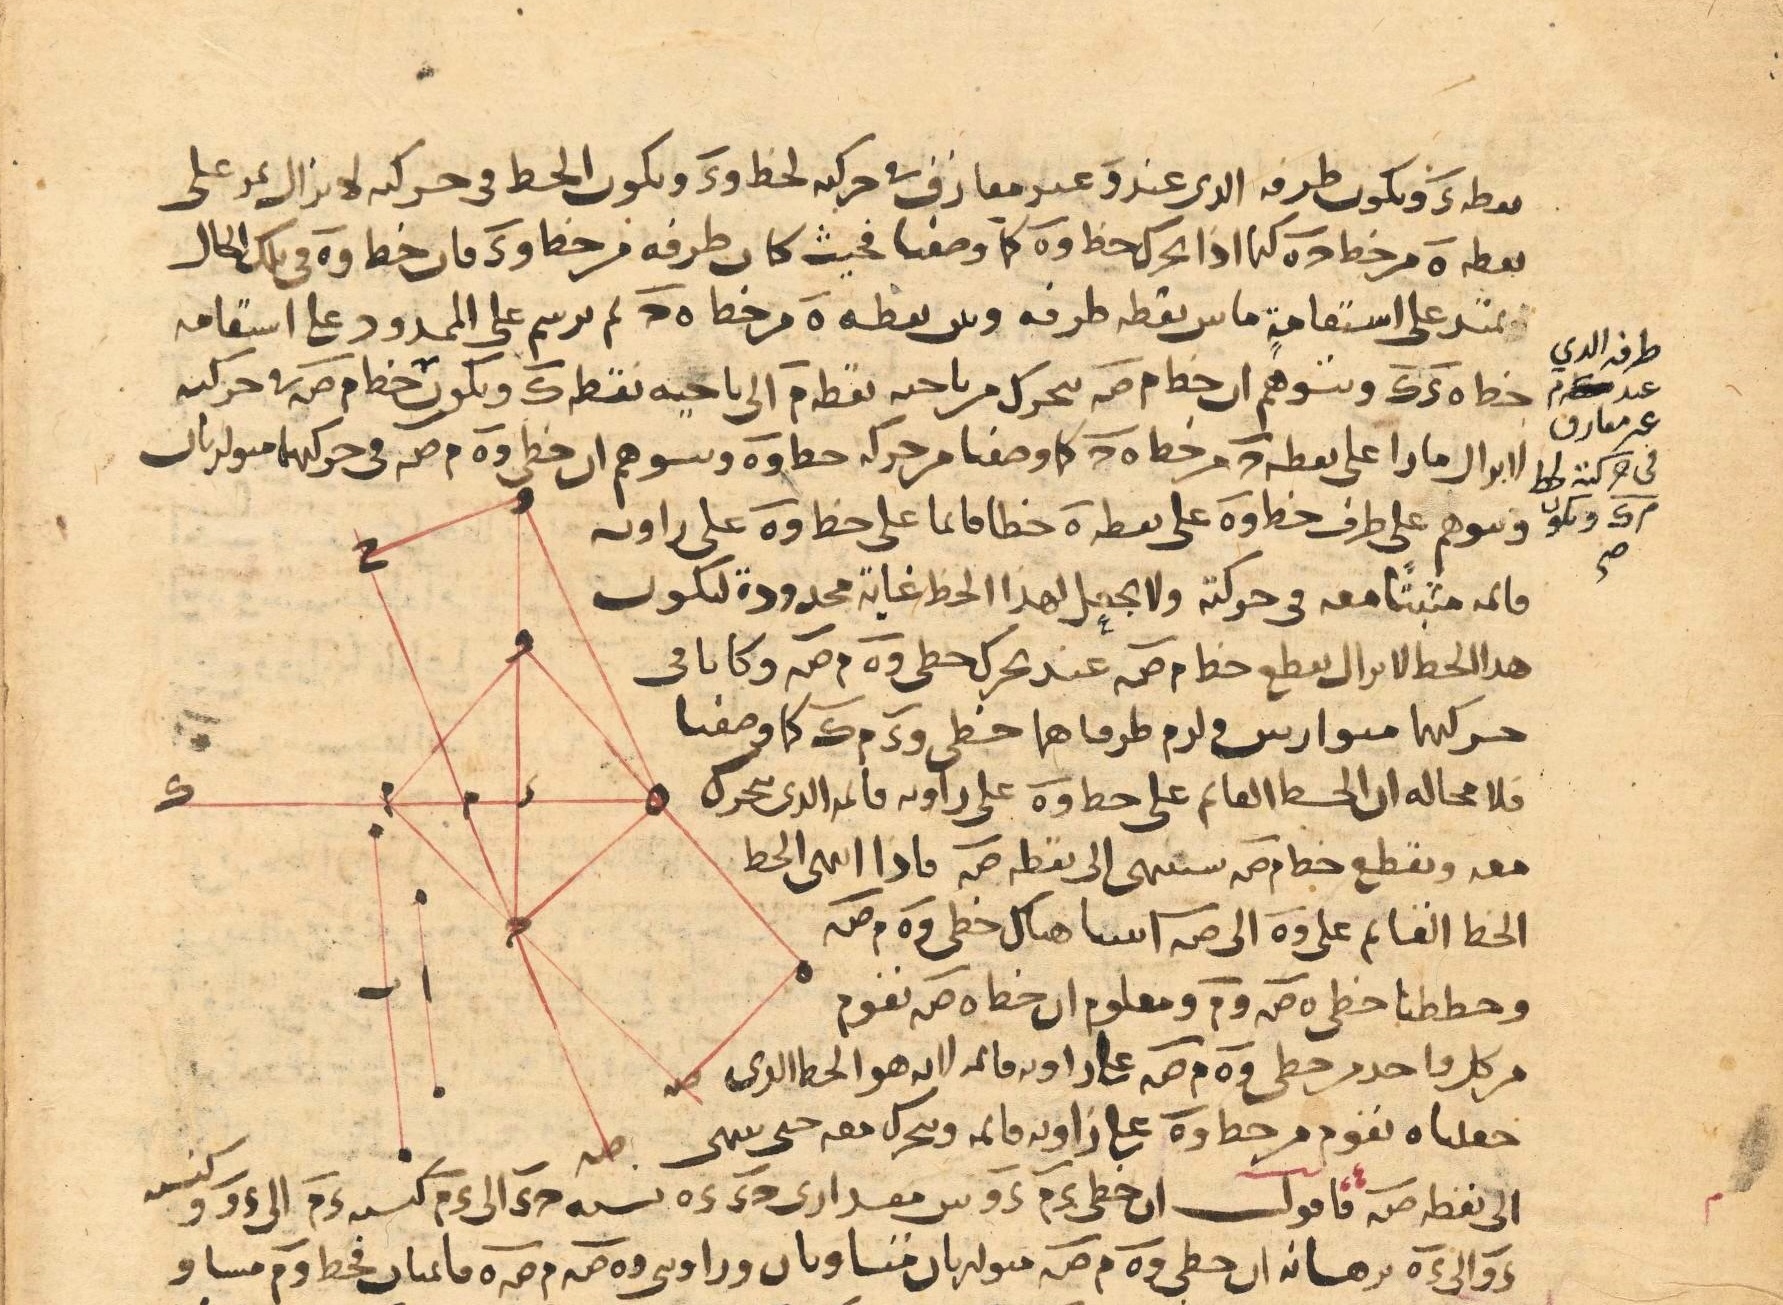 نقطة ءَ ويكون طرفه الذي عند وَ غير مفارق في حركته لخط وءَ ويكون الخط في حركته لا يزال يمر على
نقطة هَ من خط دهَ كيما اذا تحرك خط وهَ كما وصفنا فحيث كان طرفه من خط وءَ فان خط وهَ في تلك الحال
يمتد على استقامةٍ ما بين نقطة طرفه وبين نقطة هَ من خط هدَ ثم نرسم على الممدود على استقامة
خط هءَكَ ونتوهم ان خط م صَ يتحرك من ناحية نقطة مَ الى ناحية نقطة كَ ويكون خط م صَ في حركته
لا يزال مارا على نقطة دَ من خط هدَ كما وصفنا من حركة خط وهَ ونتوهم ان خطي وهَ م صَ في حركتهما متوازيان
ونتوهم على طرف خط وهَ على نقطة هَ خطا قائما على خط وهَ على زاوية
قائمة مثبتًا معه في حركته ولا نجعل لهذا الخط غاية محدودة ليكون
هذا الخط لا يزال يقطع خط م صَ عند تحرك خطي وهَ م صَ وكانا في
حركتهما متوازيين ولزم طرفاهما خطي وءَ م كَ كما وصفنا
فلا محالة ان الخط القائم على خط وهَ على زاوية قائمة الذي يتحرك
معه ويقطع خط م صَ سينتهي الى نقطة صَ فاذا انتهى الخط
الخط القائم على وهَ الى صَ اثبتنا هناك خطي وهَ م صَ
وخططنا خطي ه صَ ومَ ومعلوم ان خط ه صَ يقوم
من كل واحد من خطي وهَ م صَ على زاوية قائمة لانه هو الخط الذي
جعلناه يقوم من خط وهَ على زاوية قائمة ويتحرك معه حتى ينتهي
الى نقطة صَ فاقول ان خطي ءمَ ءوَ بين مقداري دءَ ءه نسبة دءَ الى ءمَ كنسبة ءمَ الى ءوَ وكنسبة
ءوَ الى ءهَ برهانه ان خطي وهَ م صَ متوازيان متساويان وزاويتي وه صَ م صَ ه قائمتان فخط ومَ مساو
طرفه الذي
عند م
غير مفارق
في حركته لخط
م كَ ويكون
صح
ح
و
و
ك
م
م
ء
ه
د
ه
ا
ب
ص
ص